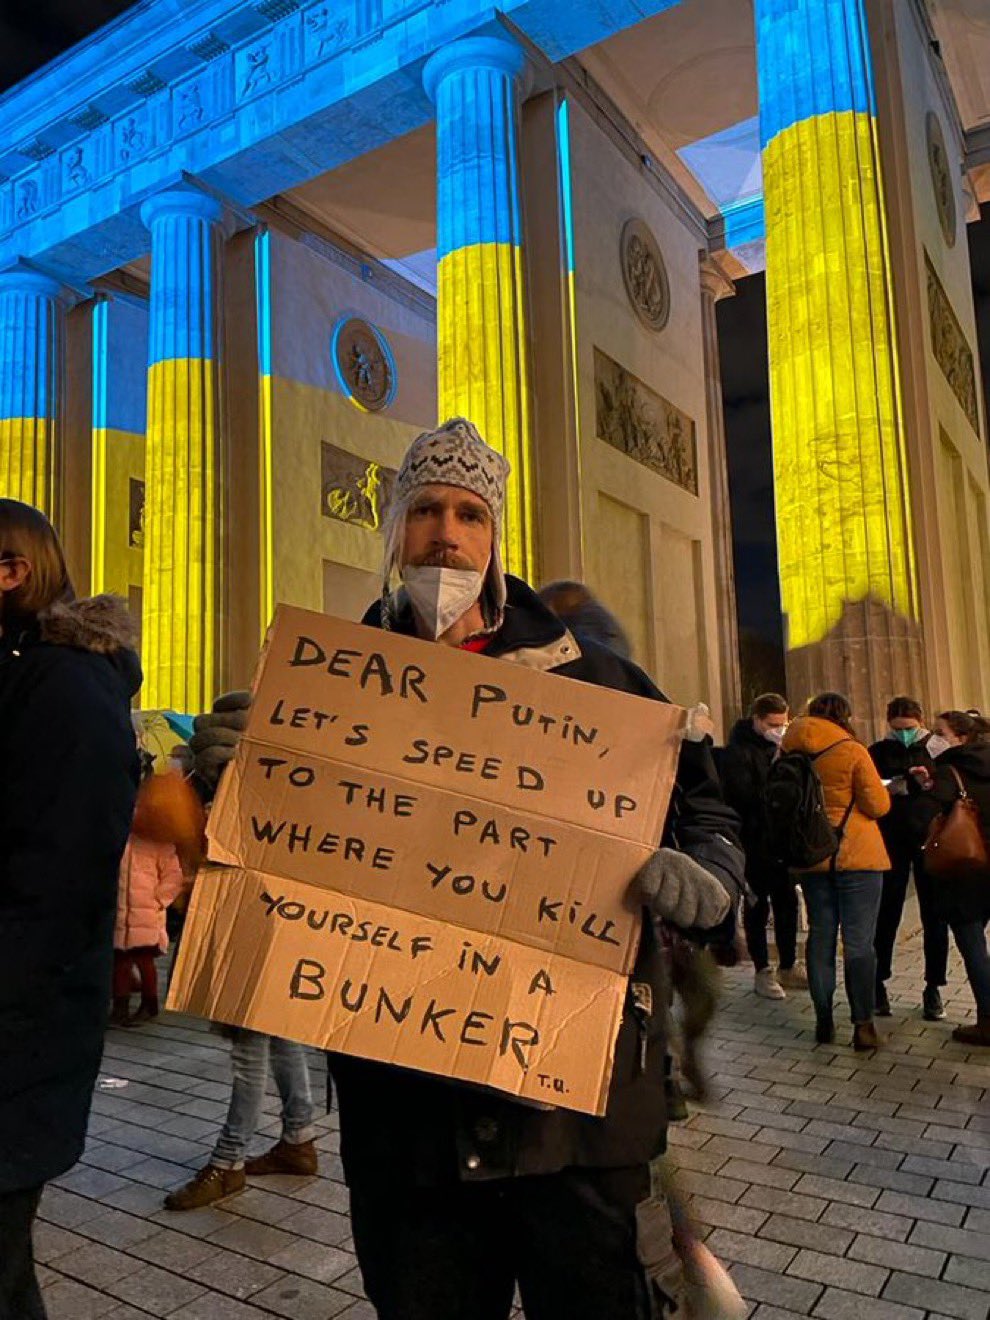 DEAR PUTiN,
LET'S SPEED UP
TO THE PART
WHERE YOU KiLL
YOURSELF iN A
BUNKER
T.U.